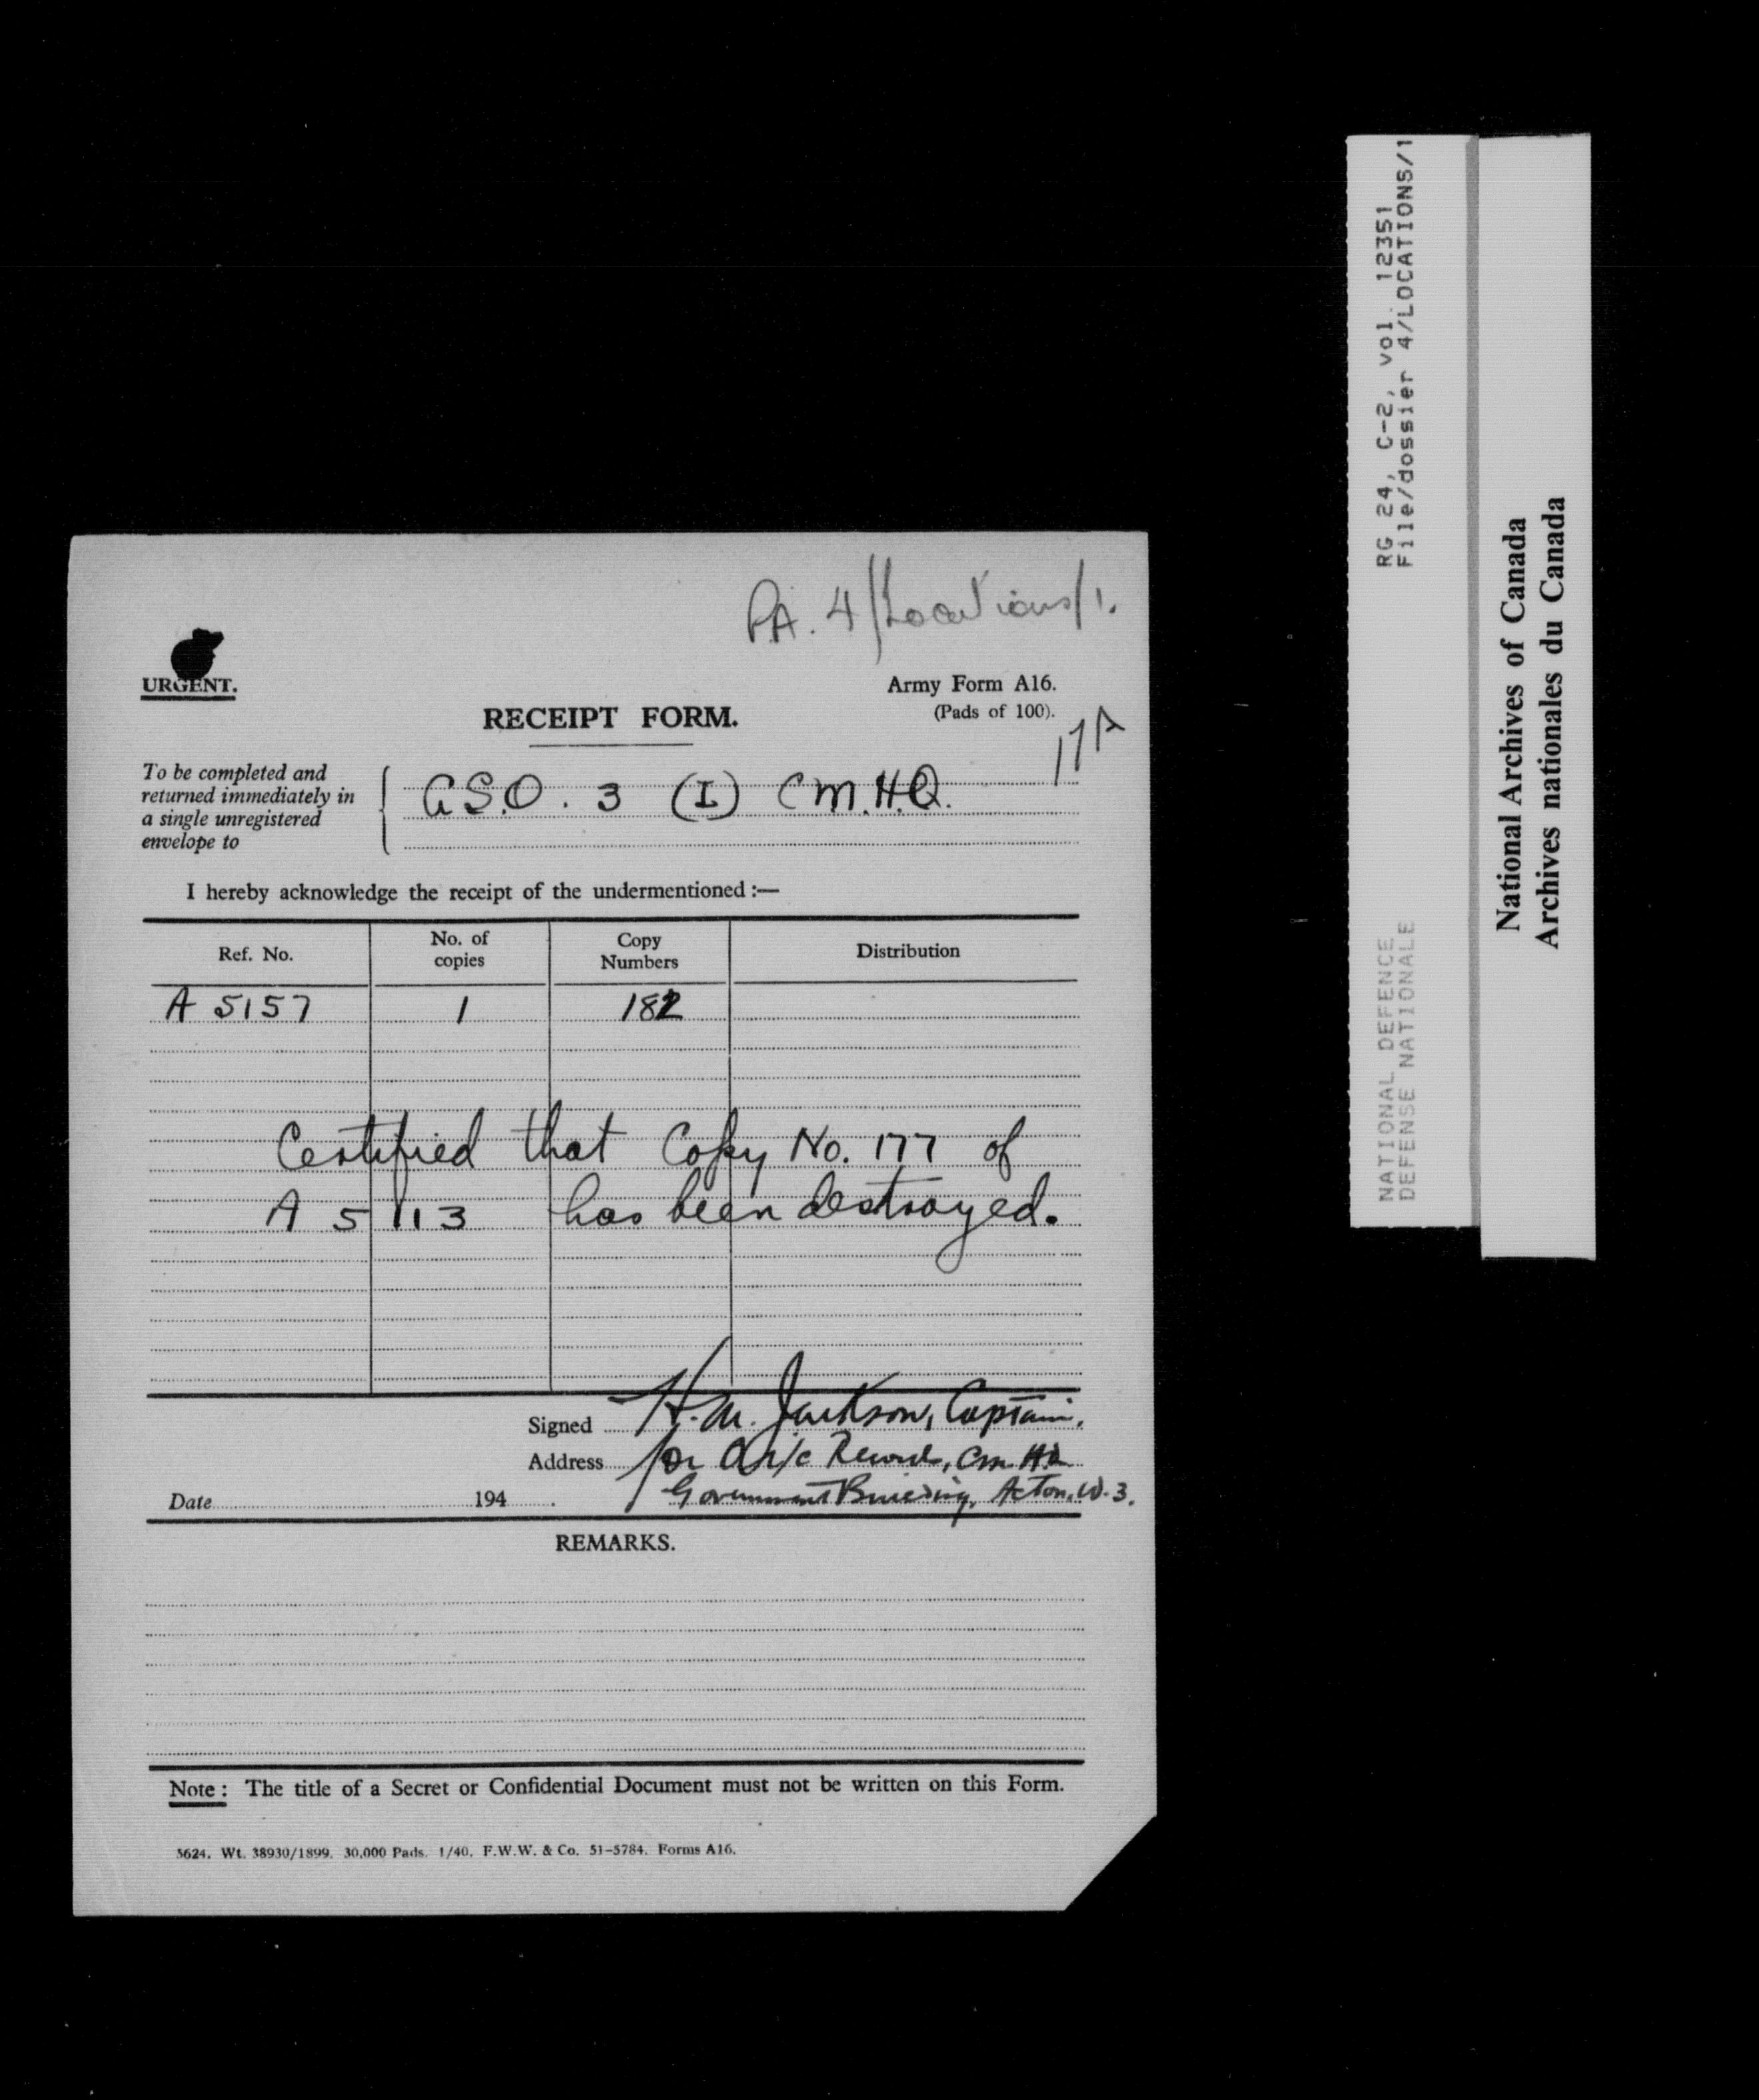 P.A. 4/Locations/1.
URGENT.
Army Form A16.
(Pads of 100).
RECEIPT FORM.
17A
To be completed and
returned immediately in
a single unregistered
envelope to
G.S.O. 3 (I) C.M.H.Q.
I hereby acknowledge the receipt of the undermentioned :—
Ref. No. No. of copies Copy Numbers Distribution
A 5157 1 182
Certified that Copy No. 177 of
A 5113 has been destroyed.
Signed H.M. Jackson, Captain,
Address for O i/c Records, CMHQ
Date 194 . Government Building, Acton, W.3.
REMARKS.
Note : The title of a Secret or Confidential Document must not be written on this Form.
5624. Wt. 38930/1899. 30,000 Pads. 1/40. F.W.W. & Co. 51-5784. Forms A16.
RG 24, C-2, vol. 12351
File/dossier 4/LOCATIONS/1
NATIONAL DEFENCE
DEFENSE NATIONALE
National Archives of Canada
Archives nationales du Canada